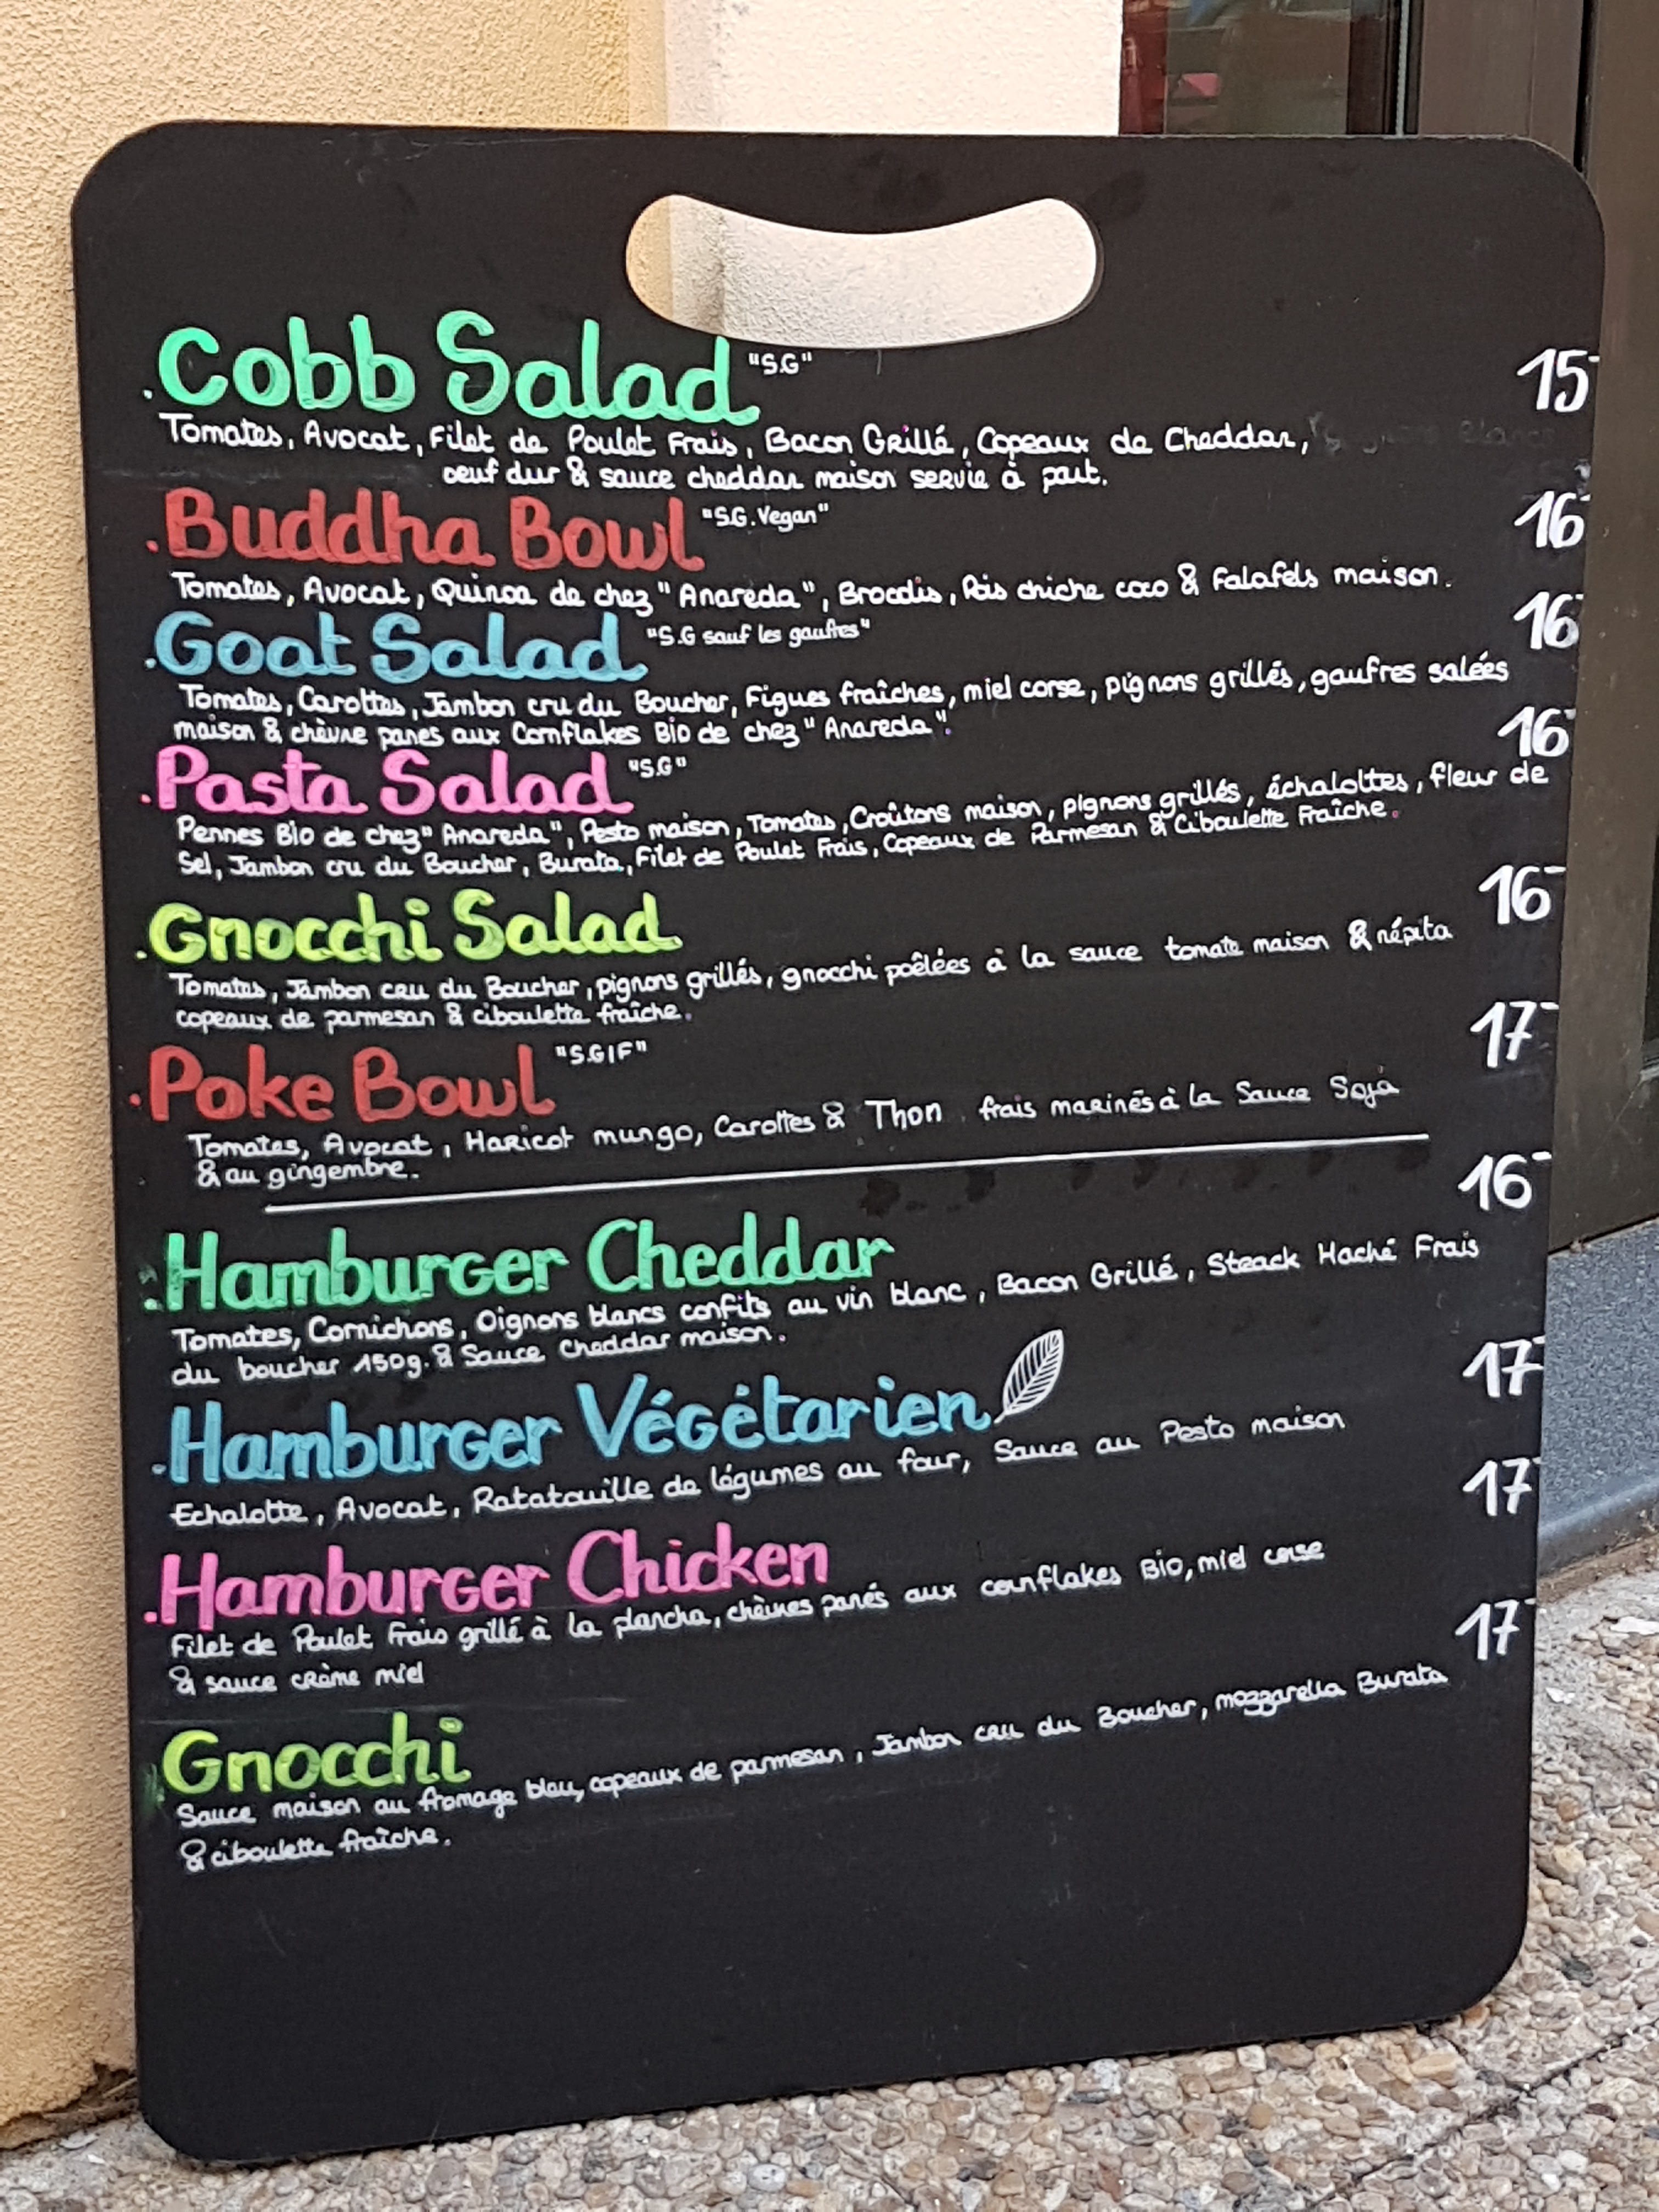 . Cobb Salad "S.G" 15-
Tomates, Avocat, Filet de Poulet Frais, Bacon Grillé, Copeaux de Cheddar,
oeuf dur & sauce cheddar maison servie à part.
. Buddha Bowl "S.G. Vegan" 16-
Tomates, Avocat, Quinoa de chez "Anareda", Brocolis, Pois chiche coco & Falafels maison.
. Goat Salad "S.G sauf les gaufres" 16-
Tomates, Carottes, Jambon cru du Boucher, Figues fraîches, miel corse, pignons grillés, gaufres salées
maison & chèvre panes aux Cornflakes Bio de chez "Anareda".
. Pasta Salad "S.G" 16-
Pennes Bio de chez "Anareda", Pesto maison, Tomates, Croûtons maison, pignons grillés, échalottes, fleur de
Sel, Jambon cru du Boucher, Burata, Filet de Poulet Frais, Copeaux de Parmesan & Ciboulette Fraîche.
. Gnocchi Salad 16-
Tomates, Jambon cru du Boucher, pignons grillés, gnocchi poêlées à la sauce tomate maison & népita
copeaux de parmesan & ciboulette fraîche.
. Poke Bowl "S.G IF" 17-
Tomates, Avocat, Haricot mungo, Carottes & Thon frais marinés à la Sauce Soja
& au gingembre.
. Hamburger Cheddar 16-
Tomates, Cornichons, Oignons blancs confits au vin blanc, Bacon Grillé, Steack Haché Frais
du boucher 150g. & Sauce Cheddar maison.
. Hamburger Végétarien 17-
Echalotte, Avocat, Ratatouille de légumes au four, Sauce au Pesto maison
. Hamburger Chicken 17-
Filet de Poulet Frais grillé à la plancha, chèvres panés aux cornflakes Bio, miel corse
& sauce crème miel
Gnocchi 17-
Sauce maison au fromage bleu, copeaux de parmesan, Jambon cru du Boucher, mozzarella Burata
& ciboulette fraîche.